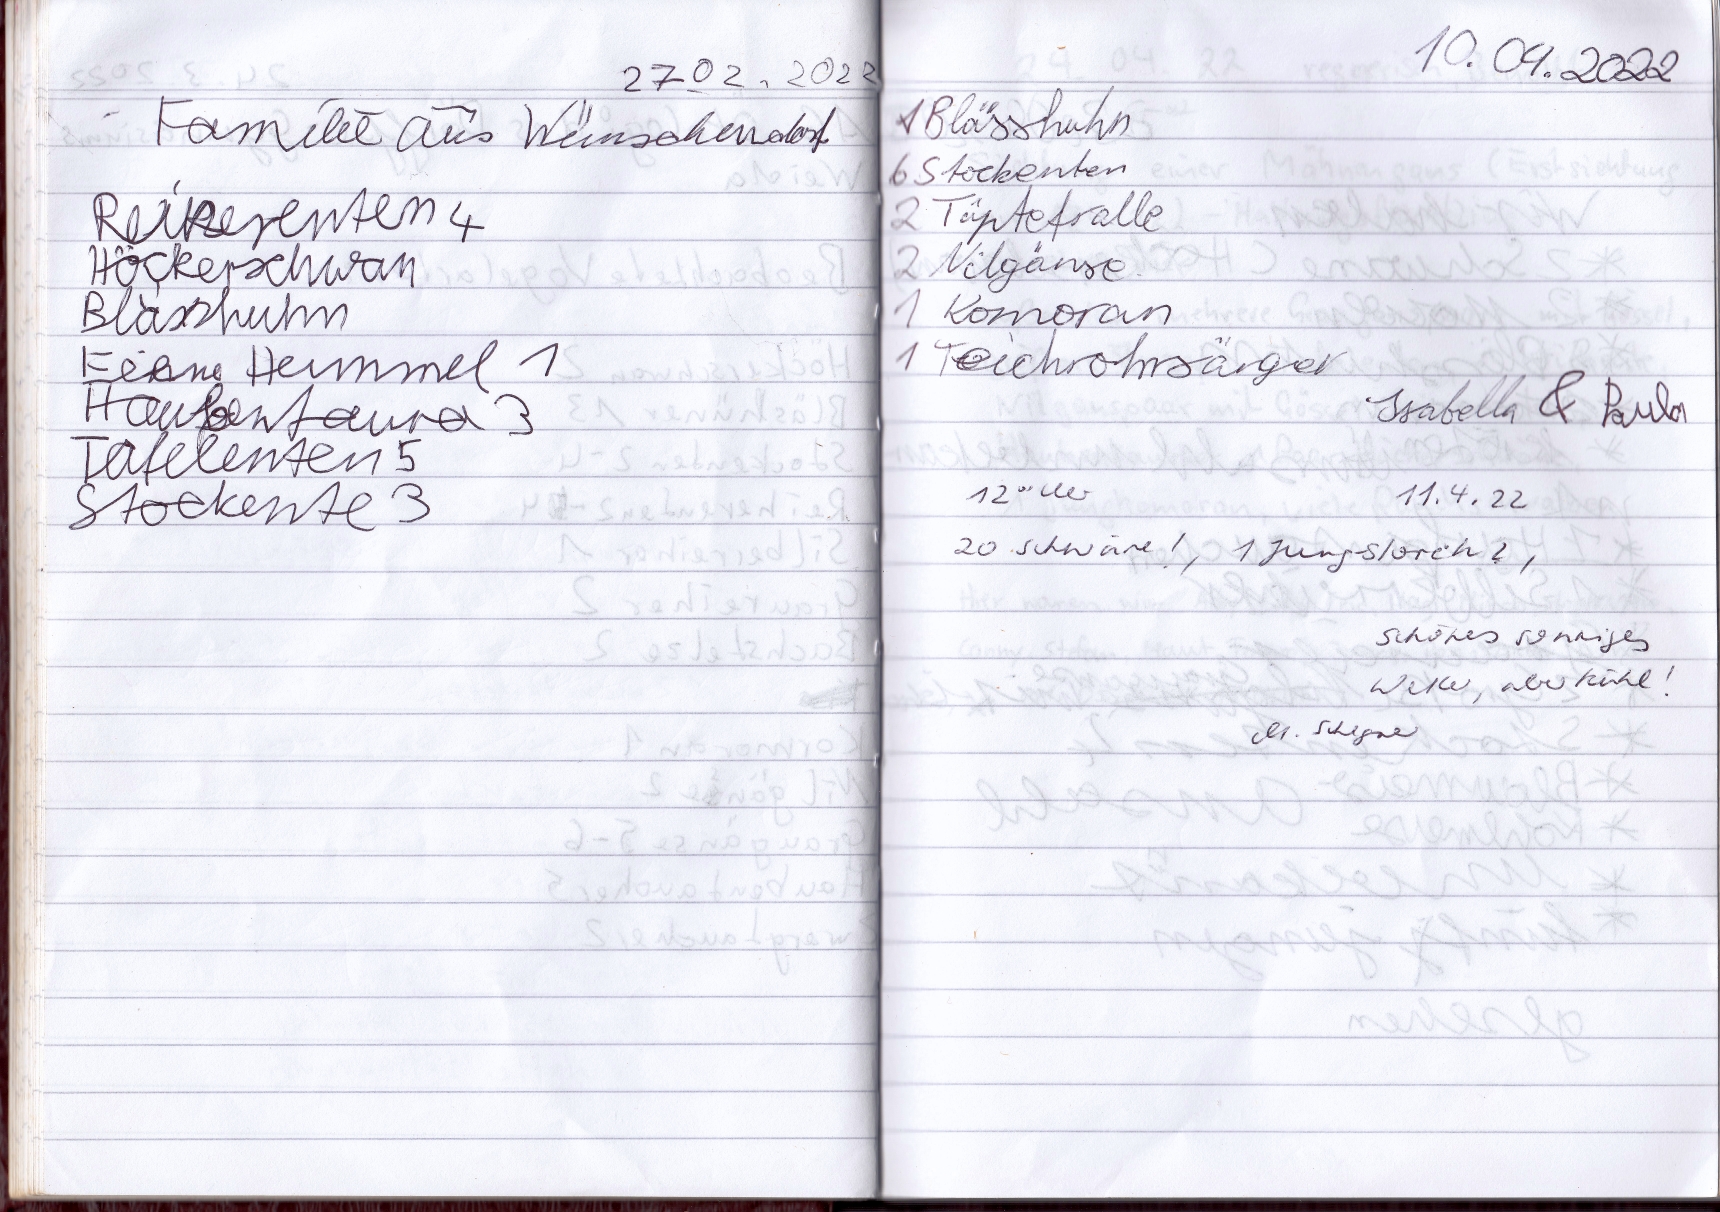 27 02. 2022
Familie aus Wünschendorf
Reiherenten 4
Höckerschwan
Blässhuhn
Eiene Hemmel 1
Haubentaura 3
Tafelenten 5
Stockente 3
10.04.2022
1 Blässhuhn
6 Stockenten
2 Tüptefralle
2 Nilgänse
1 Komoran
1 Teichrohrsärger
Isabella & Paula
12⁰⁰ Uhr 11.4.22
20 schwäne!, 1 Jungstorch?,
schönes sonniges
Wetter, aber kühl!
M.